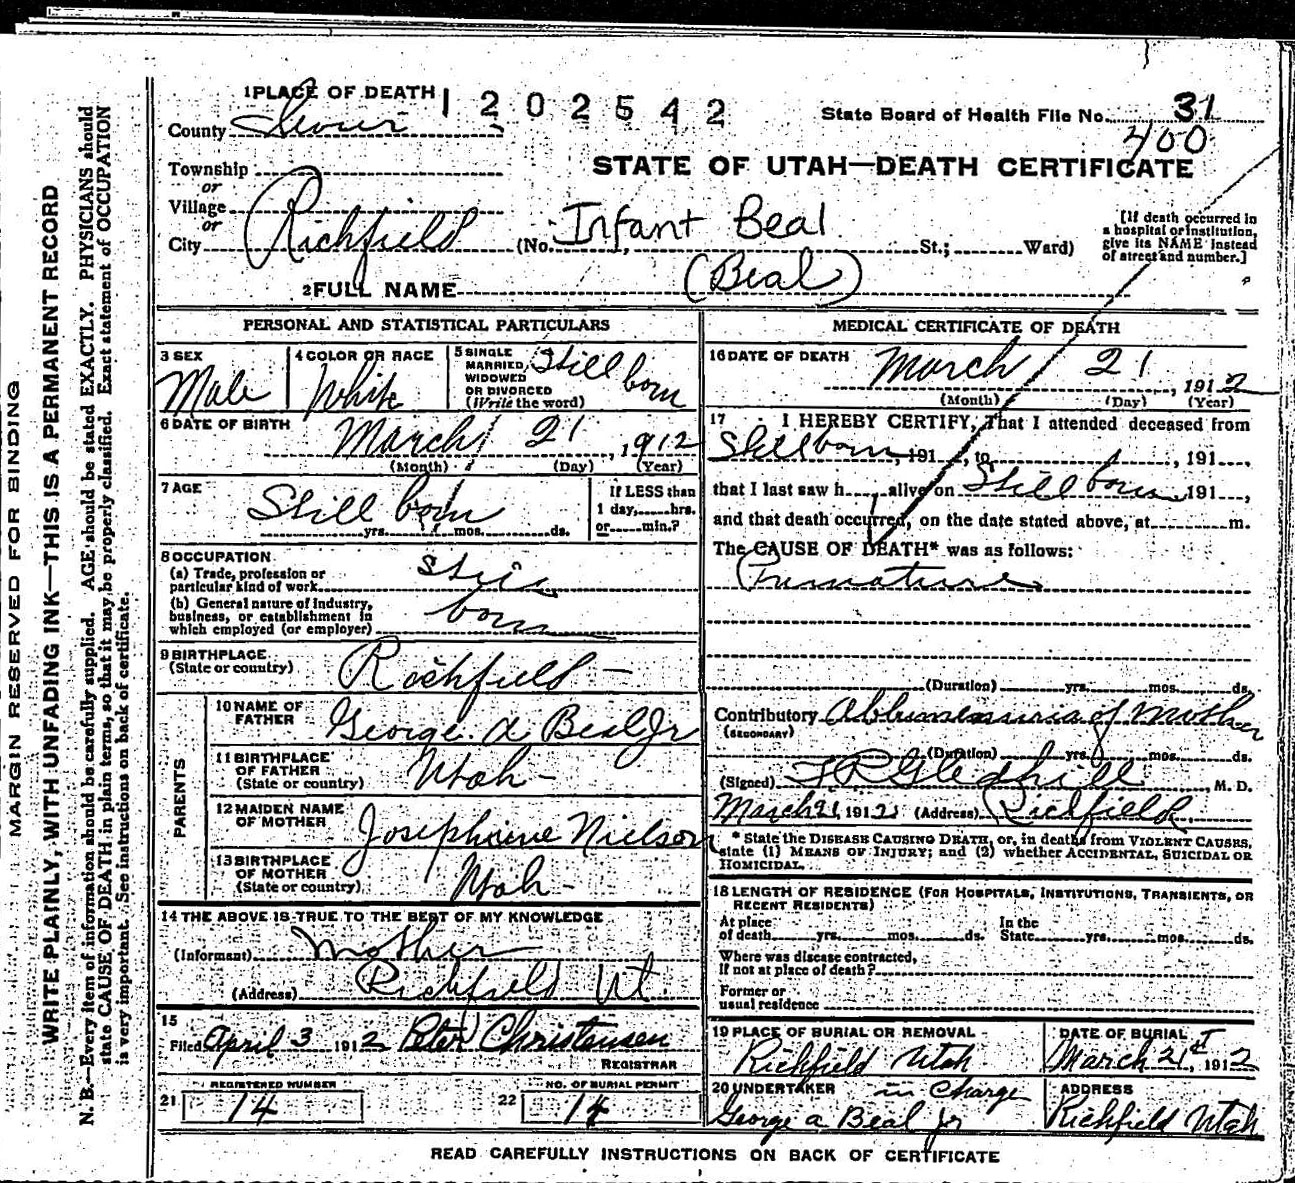 1 PLACE OF DEATH 1202542
State Board of Health File No. 31
400
County Sevier
STATE OF UTAH—DEATH CERTIFICATE
Township
or
Village
or
City Richfield (No. Infant Beal St.; Ward)
[If death occurred in
a hospital or institution,
give its NAME instead
of street and number.]
2 FULL NAME (Beal)
PERSONAL AND STATISTICAL PARTICULARS
3 SEX
Male
4 COLOR OR RACE
White
5 SINGLE
MARRIED,
WIDOWED
OR DIVORCED
(Write the word)
Still born
6 DATE OF BIRTH
March 21, 1912
(Month) (Day) (Year)
7 AGE
Still born
yrs. mos. ds.
If LESS than
1 day, hrs.
or min.?
8 OCCUPATION
(a) Trade, profession or
particular kind of work
(b) General nature of Industry,
business, or establishment in
which employed (or employer)
Still
born
9 BIRTHPLACE
(State or country)
Richfield —
PARENTS
10 NAME OF
FATHER
George. A Beal Jr
11 BIRTHPLACE
OF FATHER
(State or country)
Utah —
12 MAIDEN NAME
OF MOTHER
Josephine Nielson
13 BIRTHPLACE
OF MOTHER
(State or country)
Utah —
14 THE ABOVE IS TRUE TO THE BEST OF MY KNOWLEDGE
(Informant) Mother
(Address) Richfield Ut.
15
Filed April 3 1912 Peter Christensen
REGISTRAR
REGISTERED NUMBER
21 14
NO. OF BURIAL PERMIT
22 14
MEDICAL CERTIFICATE OF DEATH
16 DATE OF DEATH
March 21, 1912
(Month) (Day) (Year)
17 I HEREBY CERTIFY, That I attended deceased from
Stillborn, 191, to, 191,
that I last saw h alive on Still born 191,
and that death occurred, on the date stated above, at m.
The CAUSE OF DEATH* was as follows:
Premature
(Duration) yrs. mos. ds.
Contributory Albumenuria of Mother
(SECONDARY)
(Duration) yrs. mos. ds.
(Signed) T R Gledhill, M. D.
March 21, 1912 (Address) Richfield
* State the DISEASE CAUSING DEATH, or, in deaths from VIOLENT CAUSES,
state (1) MEANS OF INJURY; and (2) whether ACCIDENTAL, SUICIDAL OR
HOMICIDAL.
18 LENGTH OF RESIDENCE (FOR HOSPITALS, INSTITUTIONS, TRANSIENTS, OR
RECENT RESIDENTS)
At place
of death yrs. mos. ds.
In the
State yrs. mos. ds.
Where was disease contracted,
If not at place of death?
Former or
usual residence
19 PLACE OF BURIAL OR REMOVAL
Richfield Utah
DATE OF BURIAL
March 21st, 1912
20 UNDERTAKER in Charge
George A Beal Jr
ADDRESS
Richfield Utah
READ CAREFULLY INSTRUCTIONS ON BACK OF CERTIFICATE
MARGIN RESERVED FOR BINDING
WRITE PLAINLY, WITH UNFADING INK—THIS IS A PERMANENT RECORD
N. B.—Every item of information should be carefully supplied. AGE should be stated EXACTLY. PHYSICIANS should
state CAUSE OF DEATH in plain terms, so that it may be properly classified. Exact statement of OCCUPATION
is very important. See instructions on back of certificate.